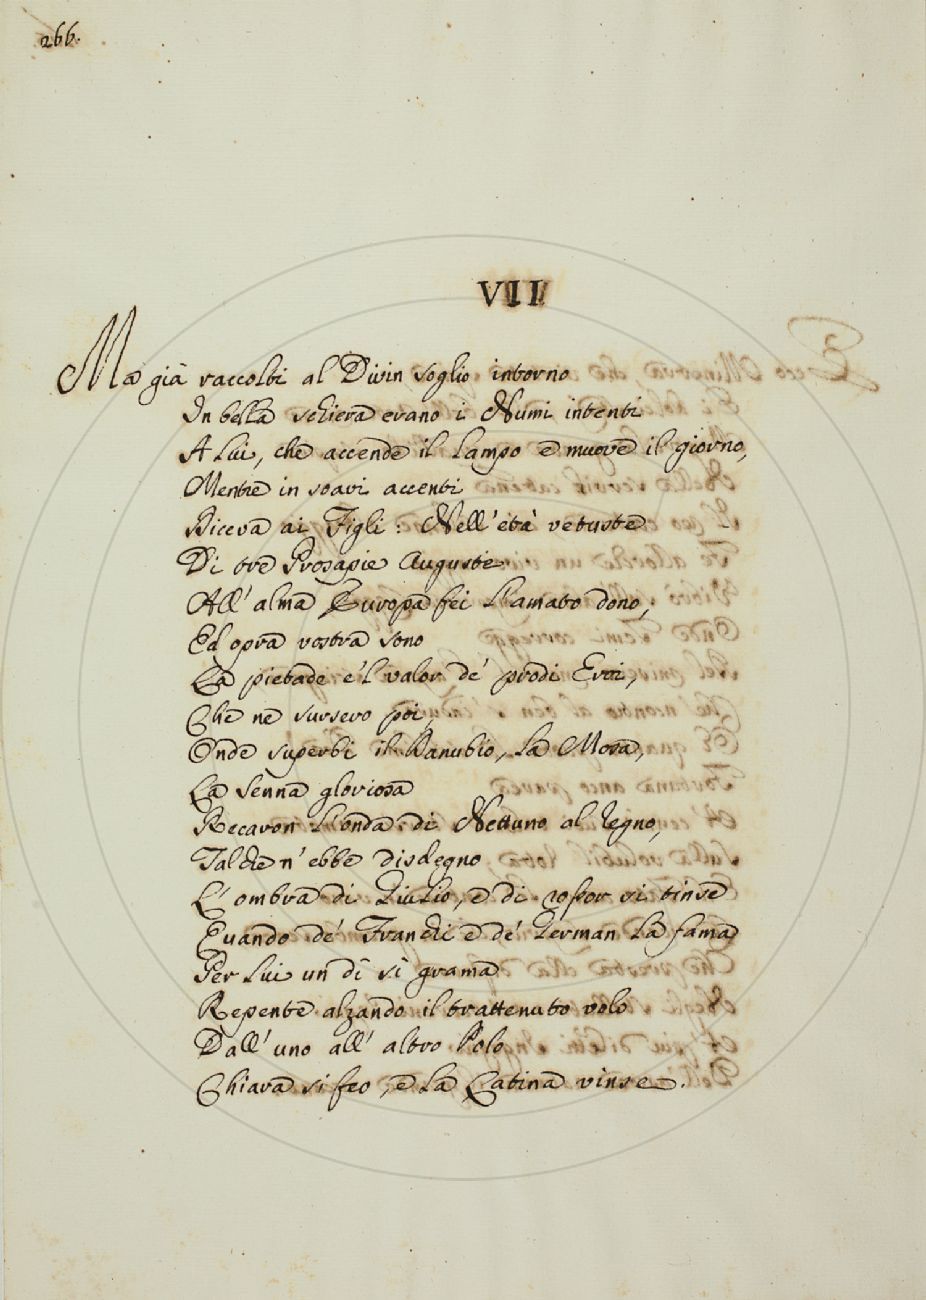 266.
VII
Ma già raccolti al Divin soglio intorno
In bella schiera erano i Numi intenti
A Lui, che accende il Lampo e muove il giorno,
Mentre in soavi accenti
Diceva ai Figli: Nell'età vetuste
Di tre Prosapie Auguste
All'alma Europa fei l'amato dono,
Ed opra vostra sono
La pietade e 'l valor de' prodi Eroi,
Che ne sursero poi,
Onde superbi il Danubio, La Mosa,
La Senna gloriosa
Recaron l'onda di Nettuno al regno,
Talché n'ebbe disdegno
L'ombra di Giulio, e di rossor si tinse
Quando de' Franchi e de' German La fama
Per Lui un dì sì grama
Repente alzando il trattenuto volo
Dall'uno all'altro Polo
Chiara si feo, e La Latina vinse.